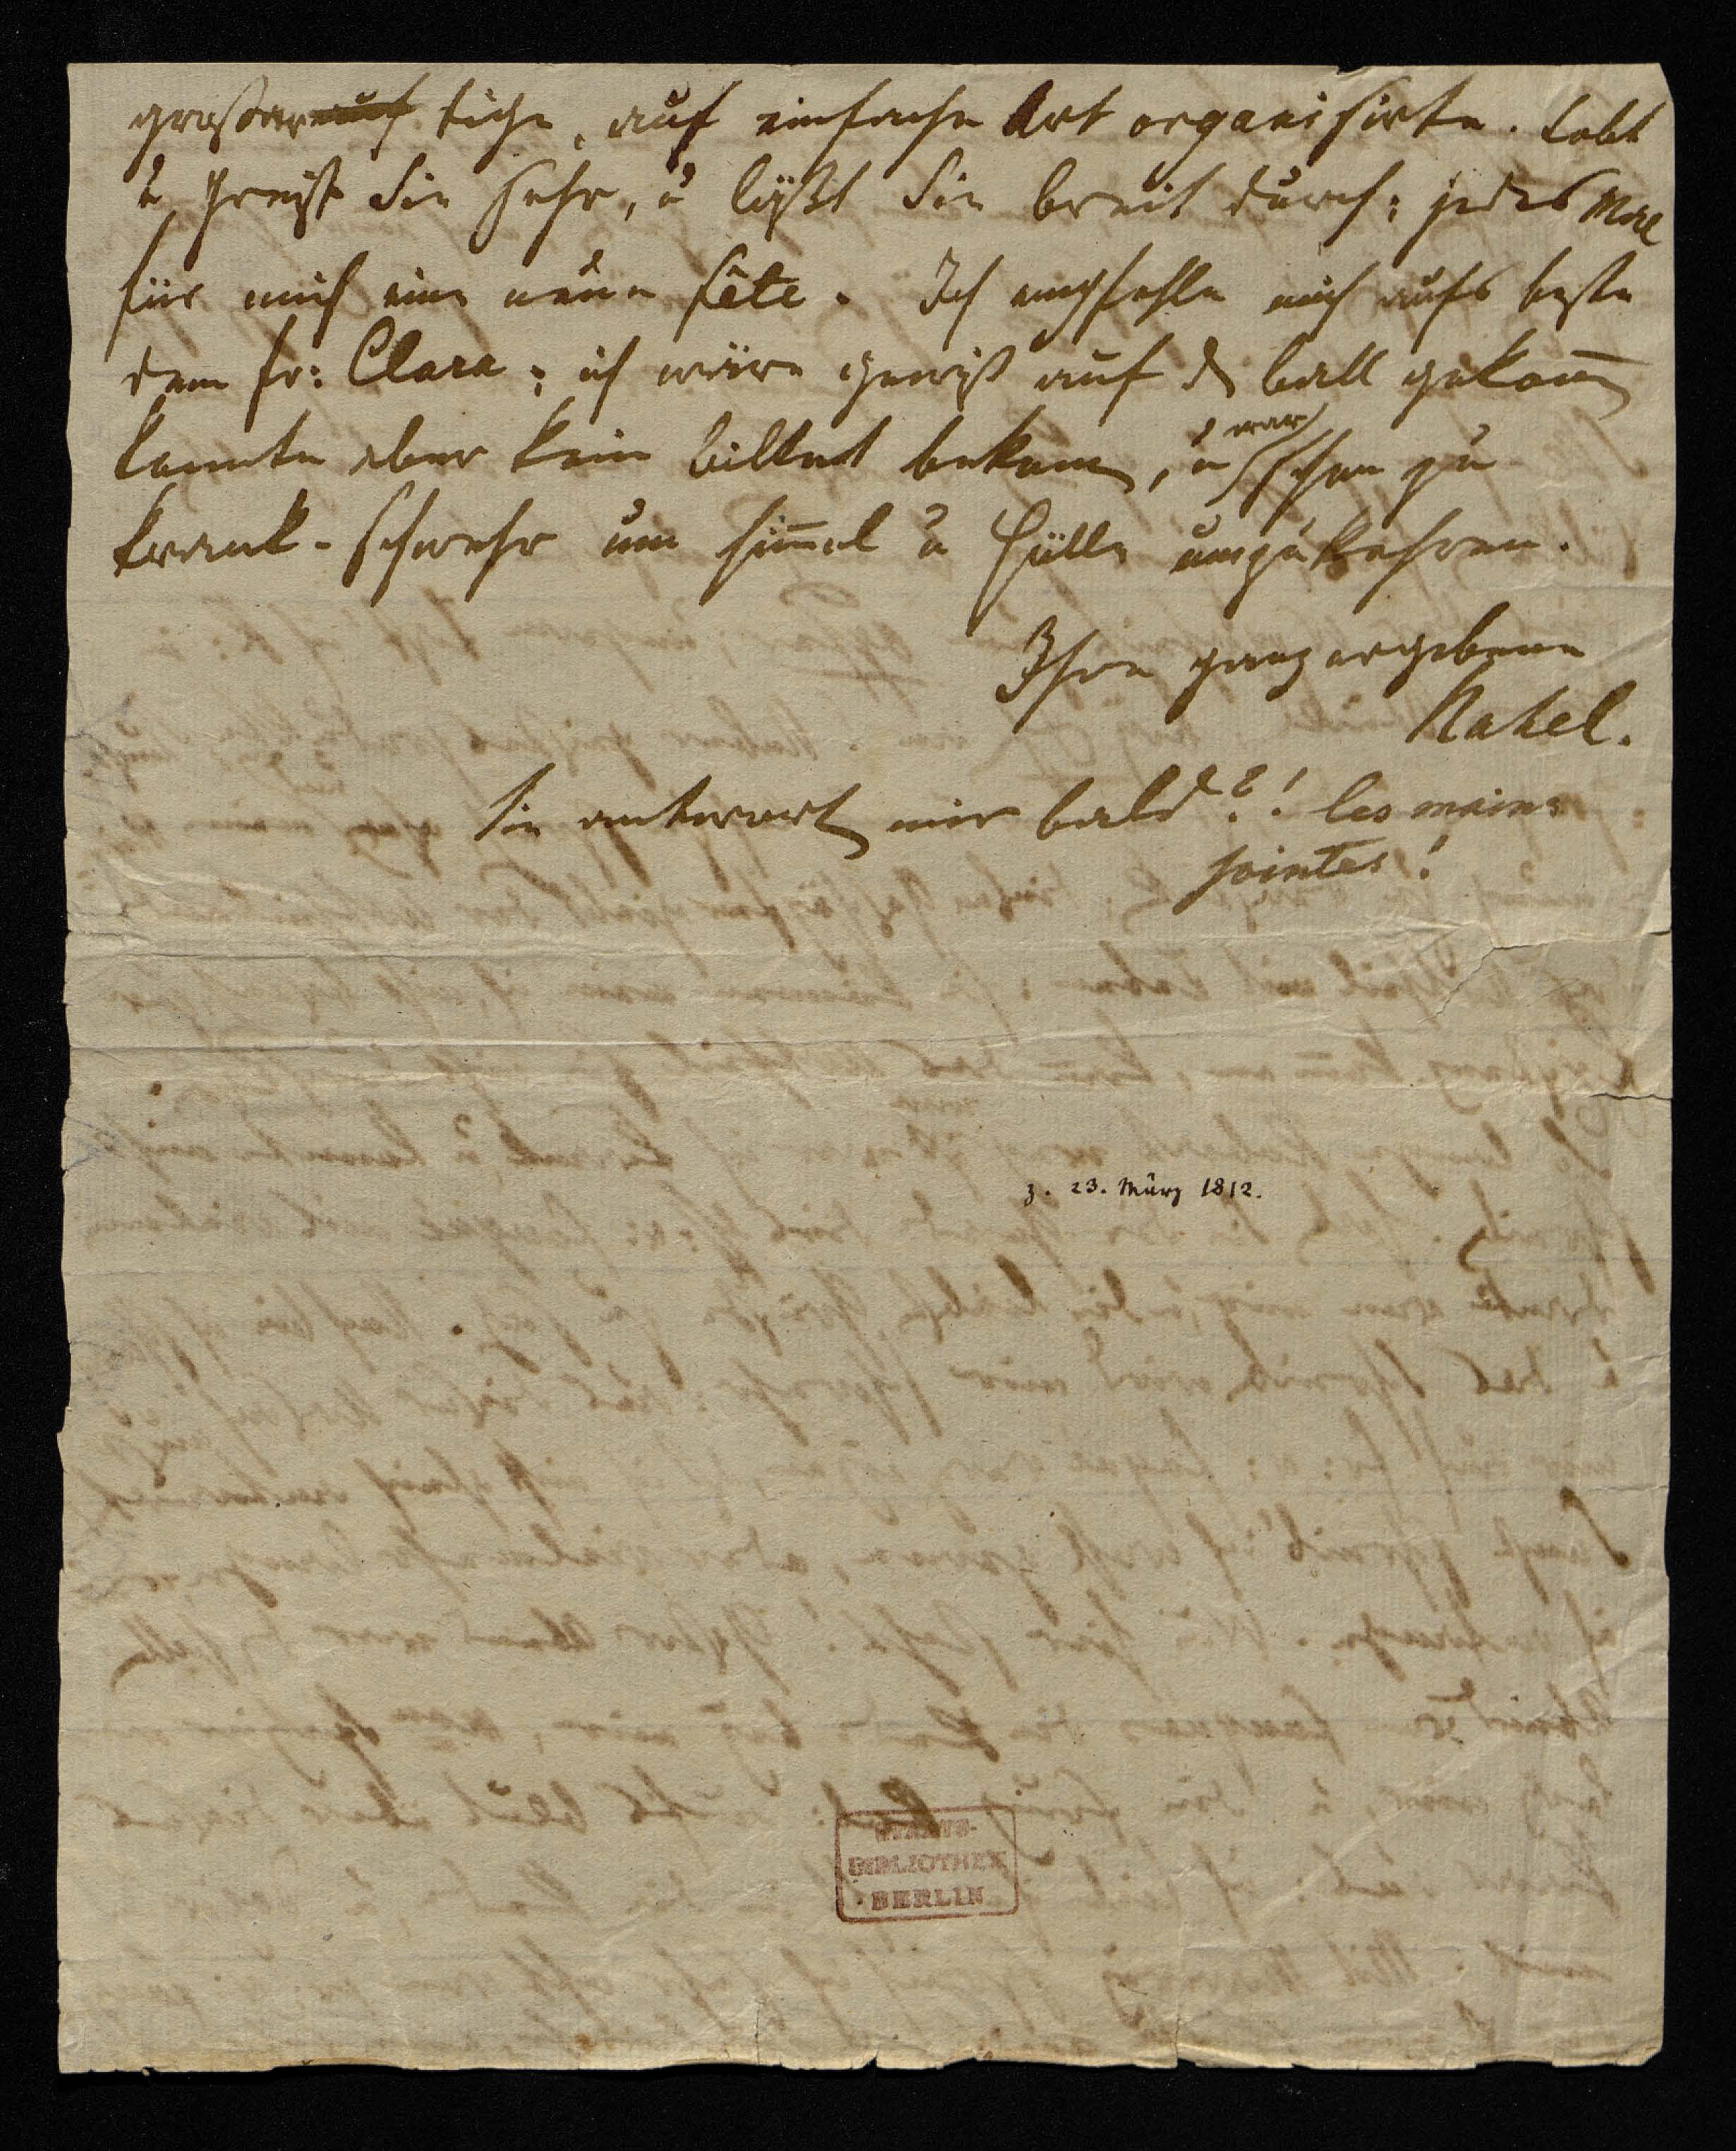 großar̶a̶u̶f̶ tige, auf einfache Art organisirte. Lobt
u preißt Sie sehr, u läßt Sie breit durch: jedes Mal
für mich eine neue fête. Ich empfehle mich aufs beste
dem Fr: Clara; ich wäre gewiß auf d ball gekom̄
konnte aber kein billet bekom, u war schon zu
krank-schwehr um Him̄el u Hölle umzukehren.
Ihre ganz ergebene
Rahel.
Sie antwort mir bald?! les mains
jointes!
z. 23. März 1812.
STAATS-
BIBLIOTHEK
BERLIN